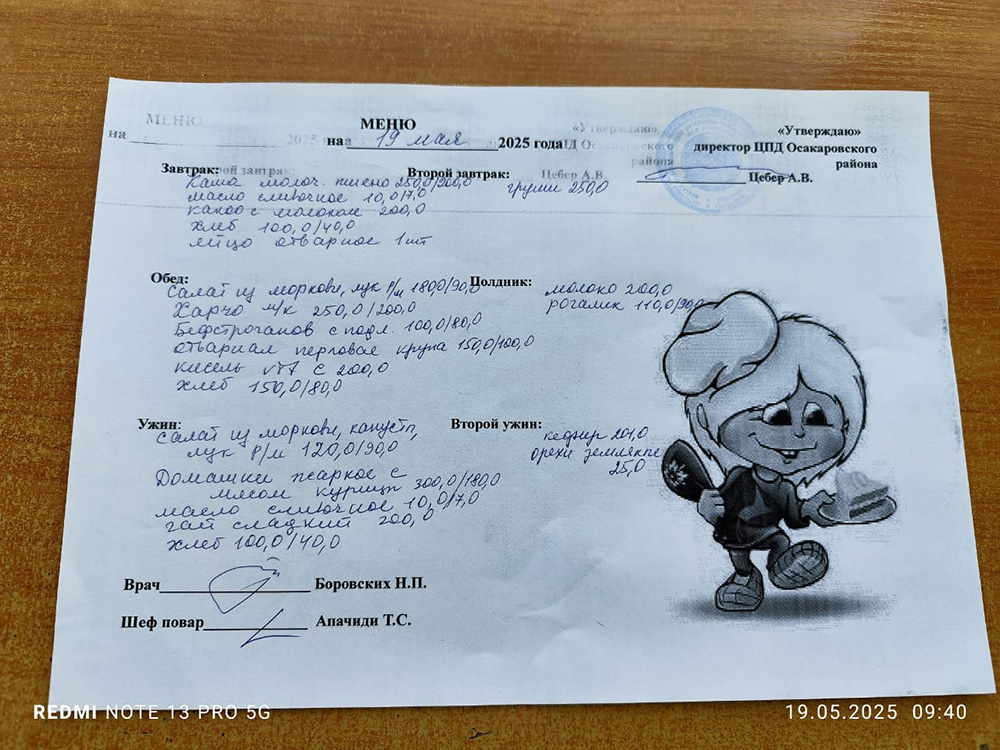 МЕНЮ
на 19 мая 2025 года
«Утверждаю»
директор ЦПД Осакаровского
района
Цебер А.В.
Завтрак:
Каша молоч. пшено 250,0/200,0
масло сливочное 10,0/7,0
какао с молоком 200,0
хлеб 100,0/40,0
яйцо отварное 1шт
Второй завтрак:
груши 250,0
Обед:
Салат из моркови, лук р/м 180,0/90,0
Харчо м/к 250,0/200,0
Бефстроганов с подл. 100,0/80,0
отварная перловая крупа 150,0/100,0
кисель с 200,0
хлеб 150,0/80,0
Полдник:
молоко 200,0
рогалик 110,0/90,0
Ужин:
Салат из моркови, капусты,
лук р/м 120,0/90,0
Домашнее жаркое с
мясом курицы 300,0/180,0
масло сливочное 10,0/7,0
чай сладкий 200,0
хлеб 100,0/40,0
Второй ужин:
кефир 201,0
орехи земляные
25,0
Врач Боровских Н.П.
Шеф повар Апачиди Т.С.
REDMI NOTE 13 PRO 5G
19.05.2025 09:40